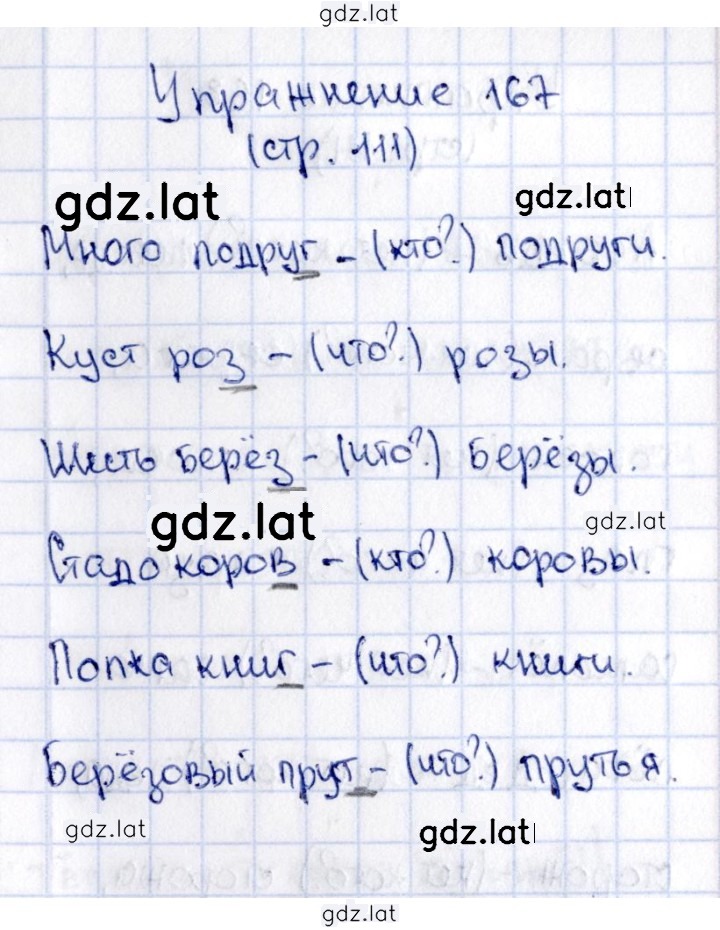 gdz.lat
Упражнение 167
(стр. 111)
gdz.lat gdz.lat
Много подруг - (кто?) подруги.
Куст роз - (что?) розы.
Шесть берёз - (что?) берёзы.
gdz.lat gdz.lat
Стадо коров - (кто?) коровы.
Полка книг - (что?) книги.
Берёзовый прут - (что?) прутья.
gdz.lat gdz.lat
gdz.lat